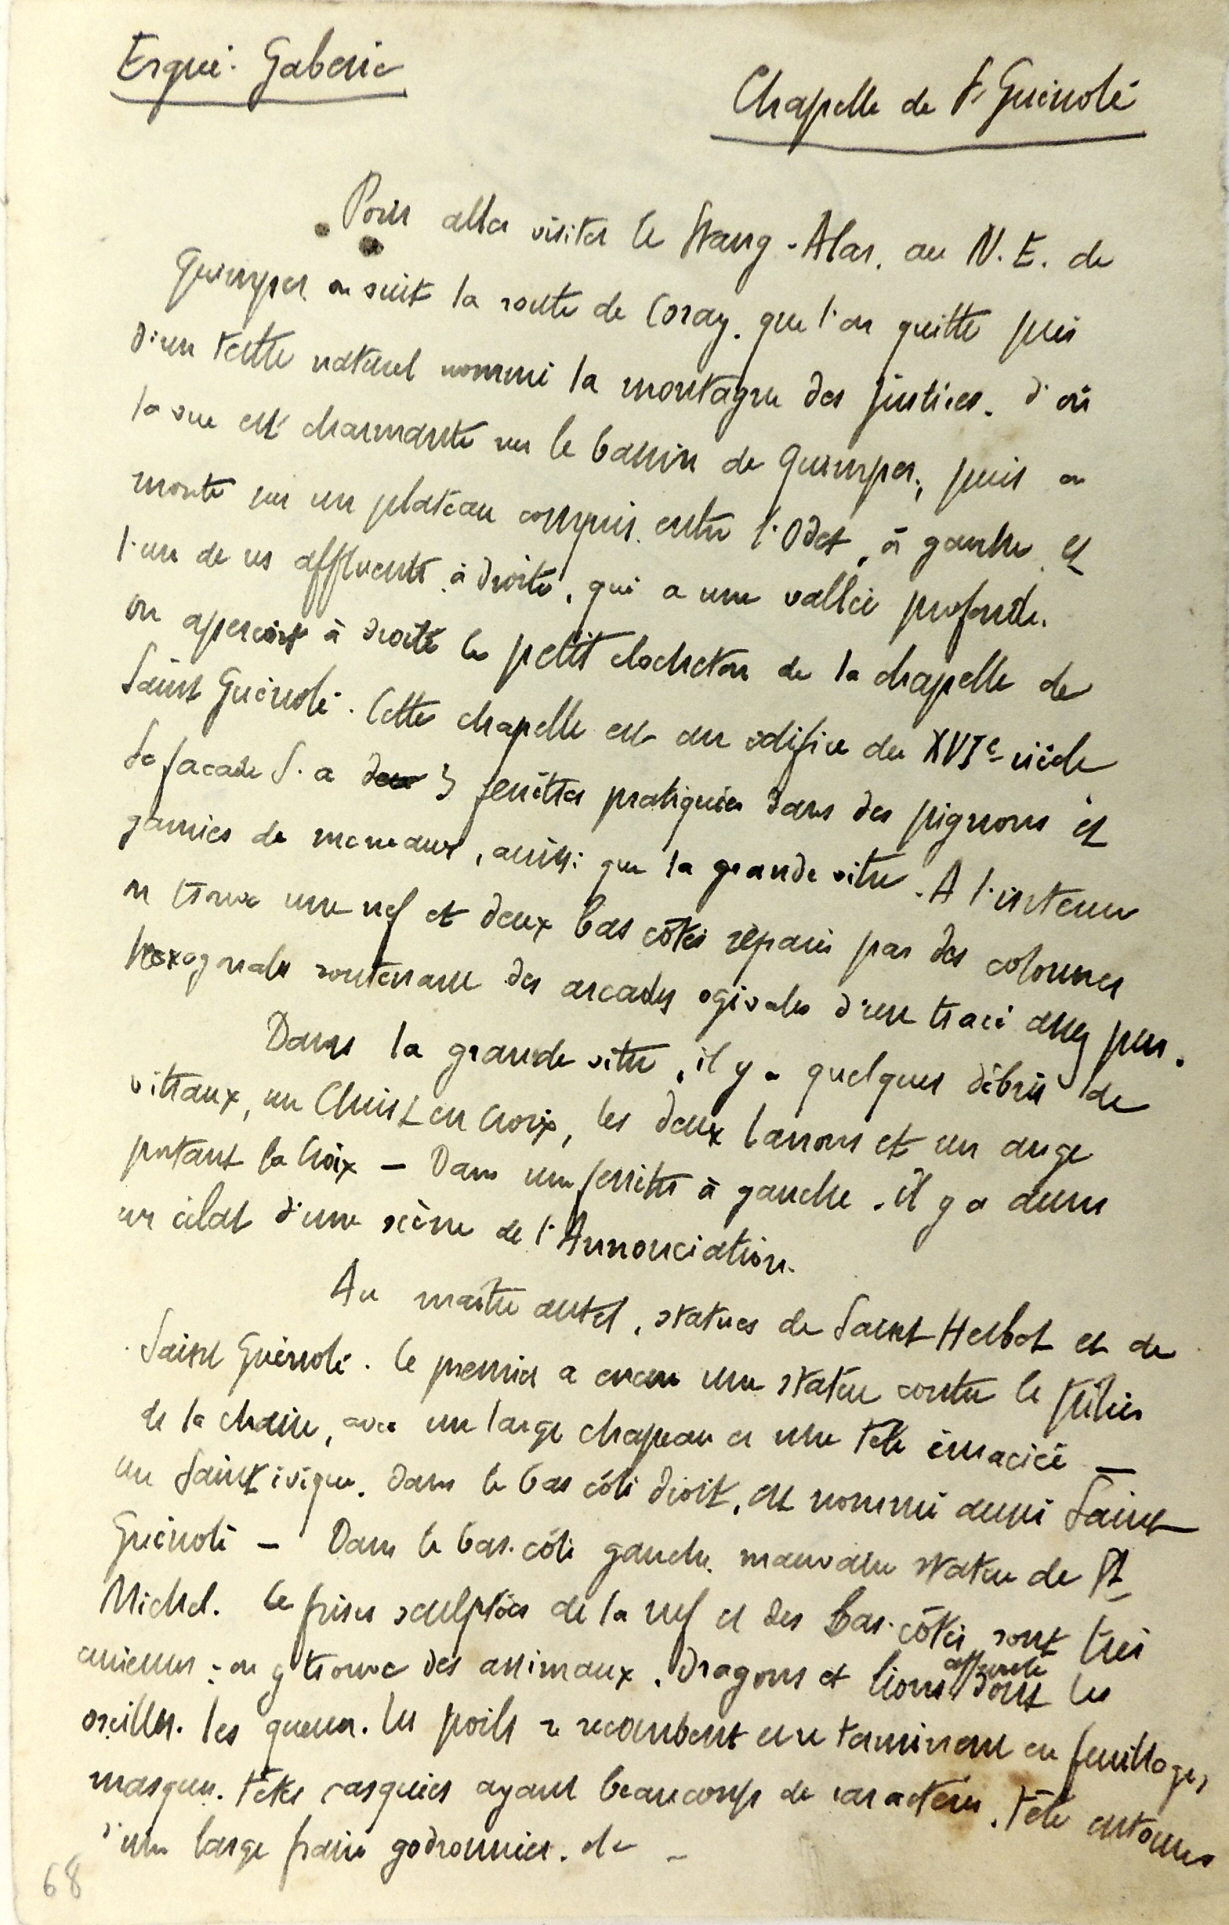 Ergué-Gabéric
Chapelle de St Guénolé
Pour aller visiter le Stang-Alar, au N.E. de
Quimper on suit la route de Coray, que l'on quitte près
d'un tertre naturel nommé la montagne des justices, d'où
la vue est charmante sur le bassin de Quimper, puis on
monte sur un plateau compris entre l'Odet, à gauche et
l'un de ses affluents à droite, qui a une vallée profonde.
on aperçoit à droite le petit clocheton de la chapelle de
Saint Guénolé. Cette chapelle est un édifice du XVIe siècle
Sa façade S. a deux 3 fenêtres pratiquées dans des pignons et
garnies de meneaux, ainsi que la grande vitre. A l'intérieur
on trouve une nef et deux bas côtés séparés par des colonnes
hexagonales soutenant des arcades ogivales d'un tracé assez pur.
Dans la grande vitre, il y a quelques débris de
vitraux, un Christ en croix, les deux larrons et un ange
portant la Croix — Dans une fenêtre à gauche, il y a aussi
un éclat d'une scène de l'Annonciation.
Au maître autel, statues de Saint Herbot et de
Saint Guénolé. Le premier a encore une statue contre le pilier
de la chaire, avec un large chapeau et une tête émaciée —
un Saint évêque, dans le bas côté droit, est nommé aussi Saint
Guénolé — Dans le bas-côté gauche, mauvaise statue de St
Michel. Les frises sculptées de la nef et des bas-côtés sont très
curieuses : on y trouve des animaux, dragons et lions affrontés dont les
oreilles, les queues, les poils se recourbent et se terminent en feuillages,
masques, têtes casquées ayant beaucoup de caractère, tête entourées
d'une large fraise godronnées. de —
68